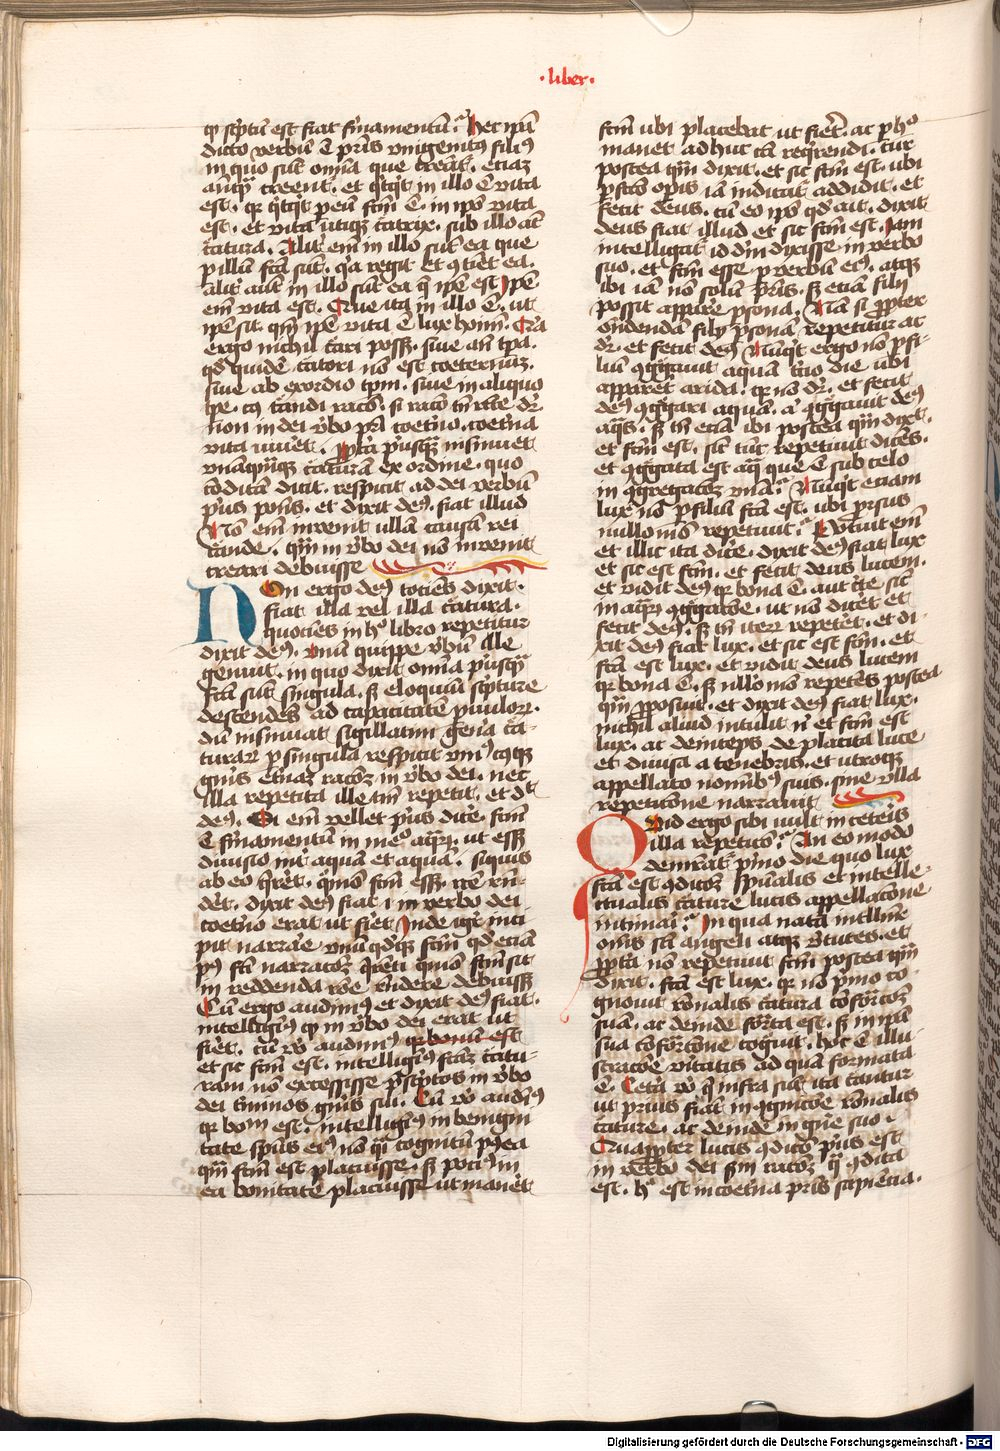 ·liber·
qͥ sc̄ptū est fiat firmamentū? Hec ip̄a
dictō verbū ē pr̄is vnigenitꝰ filiꝰ
in quo sūt om̄ia que creāt᷑. etiaꝫ
anteq̄ creent᷑. et q̄tq̇t in illo ē vita
est. qꝛ q̄tq̇t ꝑ eū fc̄m ē. in ip̄o vita
est. et vita vtiqꝫ c̄atrix. sub illo aūt
c̄atura. Alit᷑ em̄ in illo sūt ea que
ꝑ illū fc̄ā sūt. q̇a regit et ꝯtinet ea.
alit᷑ aūt in illo sūt ea q̄ ip̄e est Ip̄e
em̄ vita est. Que ita in illo ē. ut
ip̄e sit. qm̄ ip̄e vita ē lux hoīm.
ergo nichil c̄ari possꝫ. siue añ tp̄a.
qd̓ quidē c̄atori nō est coeternū.
siue ab exordio tp̄m. siue in aliquo
tp̄e. cꝰ c̄andi racō. si racō tn̄ rc̄te dr̄.
non in dei v̓bo pr̄i coet̓no. coet̓na
vita viuet᷑. Ppt̓ea pͥusqꝫ insinuet
vnāqm̄qꝫ c̄aturam ex ordine. quo
cōditā dicit. respicit ad dei verbū
pͥus ponēs. et dixit deꝰ. fiat illud
Nō em̄ inuenit ullam causam rei
c̄ande. qm̄ in v̓bo dei nō inuenit
creari debuisse
Non ergo deꝰ tociēs dixit.
fiat illa vel illa c̄atura.
quociēs in hͦ libro repetitur
dixit deꝰ. vnū quippe v̓bū ille
genuit. in quo dixit om̄ia pͥusq̄
fc̄ā sūt singula. sꝫ eloquiū sc̄pture
descendēs ad capacitatē puuloꝝ.
dū insinuat sigillatim geña c̄a-
turaꝝ ꝑ singula respicit vniꝰcuiqꝫ
gnͥis et̓naꝫ racōꝫ in v̓bo dei. nec
illa repetita ille tn̄ repetit. et dꝫ
deꝰ. Si em̄ vellet pͥus dic̓e. fc̄m
ē firmamentū in meͦ aq̄ꝝ. ut essꝫ
diuisio int̓ aquā et aquā. siquis
ab eo q̄reret᷑. qͦmō fc̄m essꝫ. rc̄te rn̄-
deret. dixit deꝰ fiat. i in verbo dei
coet̓no erat ut fiet᷑ Inde igr̄ inci
pit narrar̓e vnū qd̓qꝫ fc̄m qd̓ etiā
pꝰ fc̄i narracōꝫ q̄renti qͦmō fc̄m sit
in reddenda rōe rn̄dere debuissꝫ
Cū ergo audimꝰ et dixit deꝰ fiat.
intelligimꝰ qͥ in v̓bo dei erat ut
fiet᷑. cū v̓o audimꝰ qꝛ bonū est
et sic fc̄m est. intelligimꝰ fc̄am c̄atu-
ram nō excessisse p̄scͥptos in v̓bo
dei t̓minos gnͥis sui. Cū v̓o audimꝰ
qꝛ bonū est. intelligimꝰ in benigni
tate spūs eiꝰ nō q̄si cognitū pꝰ ea
qm̄ fc̄m est placuisse. sꝫ pociꝰ in
ea bonitate placuisse ut maneret
fc̄m ubi placebat ut fieret. ac ꝑ hͦ
manet adhuc c̄a req̇rendi. cur
postea qm̄ dixit. et sic fc̄m est. ubi
ꝑfc̄os opis iā indicat᷑ addidit. et
fecit deus. cū eo ipͦ qd̓ ait. dixit
deus fiat illud et sic fc̄m est. Iam
intelligat᷑ id dm̄ dixisse in verbo
suo. et fc̄m esse ꝑ verbū eiꝰ. atqꝫ
ibi iā nō solū pr̄is. sꝫ etiā filii
possit apparere ꝑsona. Nā si ꝓpter
ondendā filii ꝑsonā repetitur ac
dr̄. et fecit deꝰ Nūq̇t ergo nō ꝑ fi-
liū ꝯg̓gauit aquā t̓cio die ubi
apparet᷑ arida. qꝛ nō dr̄. et fecit
deꝰ ꝯg̓gari aquā. aͭ ꝯg̓gauit deꝰ
aq̄s. sꝫ tn̄ etiā ibi postea qm̄ dixit.
et fc̄m est. sic tūc repetiuit dicēs.
et ꝯg̓gata est aq̄ que ē sub celo
in ꝯgregacōeꝫ vnā? Nūq̇t etiam
lux nō ꝑ filium fc̄a est. ubi ꝑrsus
nullo mͦ repetiuit? Potuit em̄
et illic ita dic̓e. dixit deꝰ fiat lux
et sic est fc̄m. et fecit deus lucem.
et vidit deꝰ qꝛ bona ē. aut c̄te sic̄
in aq̄rꝝ ꝯg̓gacōe. ut nō diceret et
fecit deꝰ. sꝫ tn̄ iteꝝ repetet᷑. et di-
xit deꝰ fiat lux. et sic est fc̄m. et
fc̄a est lux. et vidit deus lucem
qꝛ bona ē. sꝫ nllo mͦ repetēs postea
qm̄ ꝓposuit. et dixit deꝰ fiat lux.
nichil aliud intulit nͥ et fc̄m est
lux. ac deinceps de placita luce
et diuisa a tenebris. et utroqꝫ
appellato nominibꝰ suis. sine vlla
repeticōne narrauit
Quid ergo sibi uult in cet̓is
illa repeticio? An eo modo
demr̄at᷑ pͥmo die quo lux
fc̄a est ꝯdicōꝫ spūalis et intelle-
ctualis c̄ature lucis appellacōne
intimari? In qua nata intlli᷑ne
om̄s sc̄i angeli atqꝫ v̓tutes. et
ꝓpt̓a nō repetiuit fc̄m postea qm̄
dixit. fc̄a est lux. qꝛ nō pͥmo co-
gnouit rōnalis c̄atura cōformacōꝫ
suā. ac deinde formata est. sꝫ in ip̄a
sua cōformacōne cognouit. hͦc ē illu
stracōe v̓itatis ad quā formata
ē. Cet̓a v̓o q̄ infra sūt ita c̄antur
ut prius fiat in ꝯgnicōe rōnalis
c̄ature. ac deinde in gn̄e suo.
Quapropter lucis ꝯdicō pͥus est
in verbo dei scdm racōꝫ q̄ ꝯdita
est. hͦ est in coet̓na pr̄is sapiēcia.
Digitalisierung gefördert durch die Deutsche Forschungsgemeinschaft - DFG